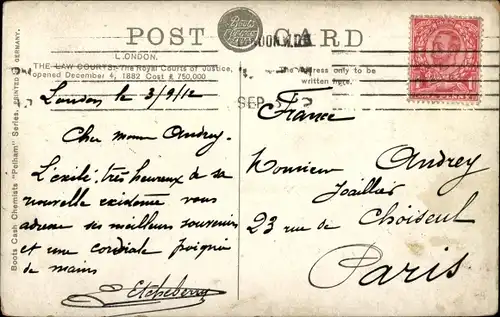 POST CARD
Boots Cash Chemists
LONDON.
THE LAW COURTS: The Royal Courts of Justice,
opened December 4, 1882 Cost £ 750,000
The Address only to be
written here.
LONDON
SEP 3
Boots Cash Chemists "Pelham" Series. PRINTED IN GERMANY.
London le 3/9/12
Cher monr Audrey.
L'exilé, très heureux de sa
nouvelle existence vous
adresse ses meilleurs souvenirs
et une cordiale poignée
de mains
Etcheberry
France
Monsieur Audrey
Joaillier
23 rue de Choiseul
Paris